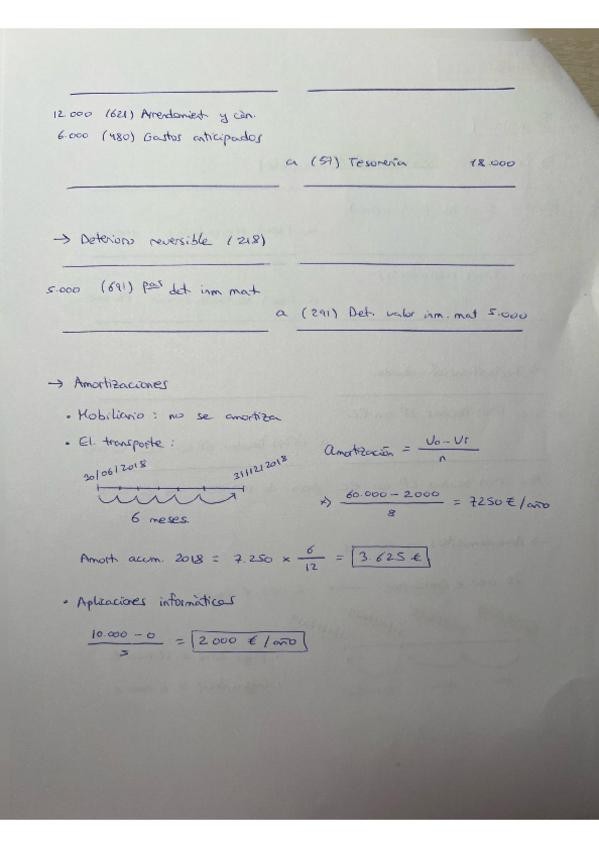 12.000 (621) Arrendamient. y cán.
6.000 (480) Gastos anticipados
a (57) Tesorería 18.000
→ Deterioro reversible (218)
5.000 (691) Pas det. inm mat
a (291) Det. valor inm. mat 5.000
→ Amortizaciones
• Mobiliario : no se amortiza
• El. transporte :
30/06/2018 31/12/2018
6 meses
Amortización = Vo - Vr / n
*) 60.000 - 2000 / 8 = 7250 € / año
Amort. acum. 2018 = 7.250 x 6/12 = 3.625 €
• Aplicaciones informáticas
10.000 - 0 / 5 = 2000 € / año